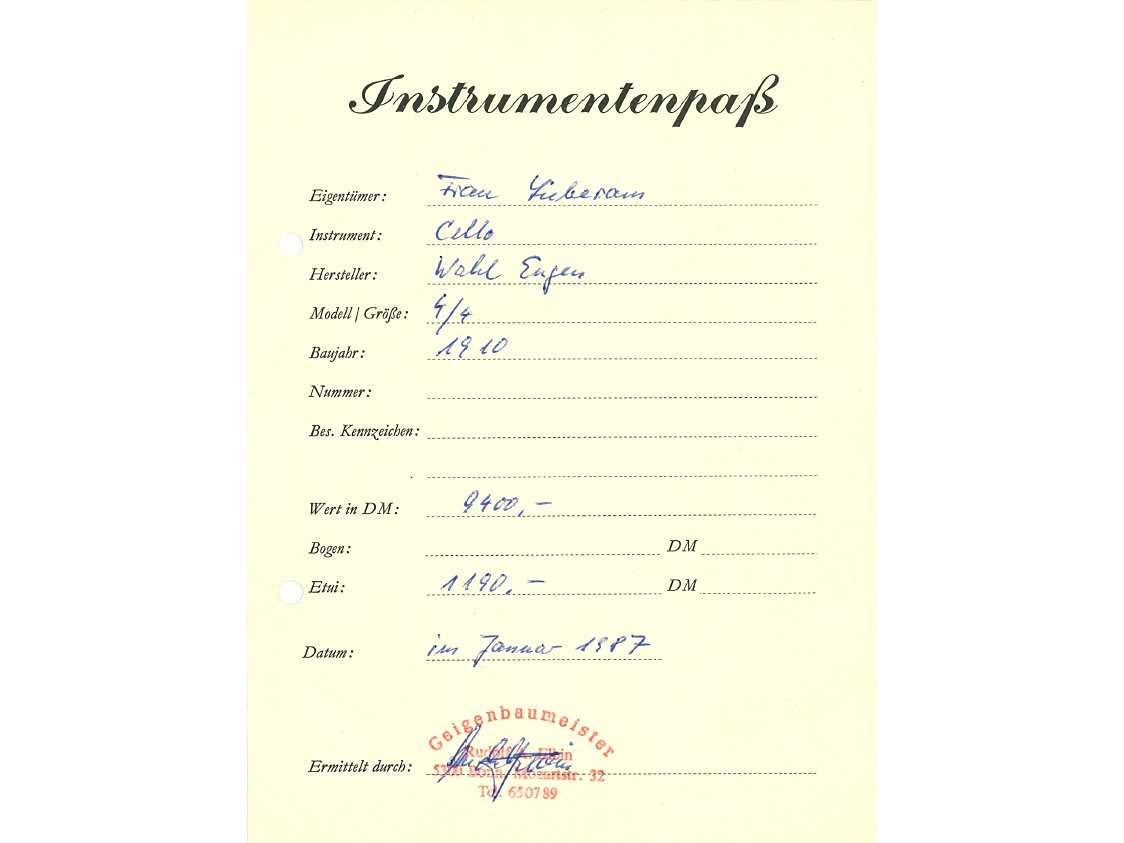 Instrumentenpaß
Eigentümer: Frau
Instrument: Cello
Hersteller: Wahl Eugen
Modell / Größe: 4/4
Baujahr: 1910
Nummer:
Bes. Kennzeichen:
Wert in DM: 9400,—
Bogen: DM
Etui: 1190,— DM
Datum: im Januar 1987
Geigenbaumeister
Ermittelt durch:
5300 Bonn, Mozartstr. 32
Tel. 650789